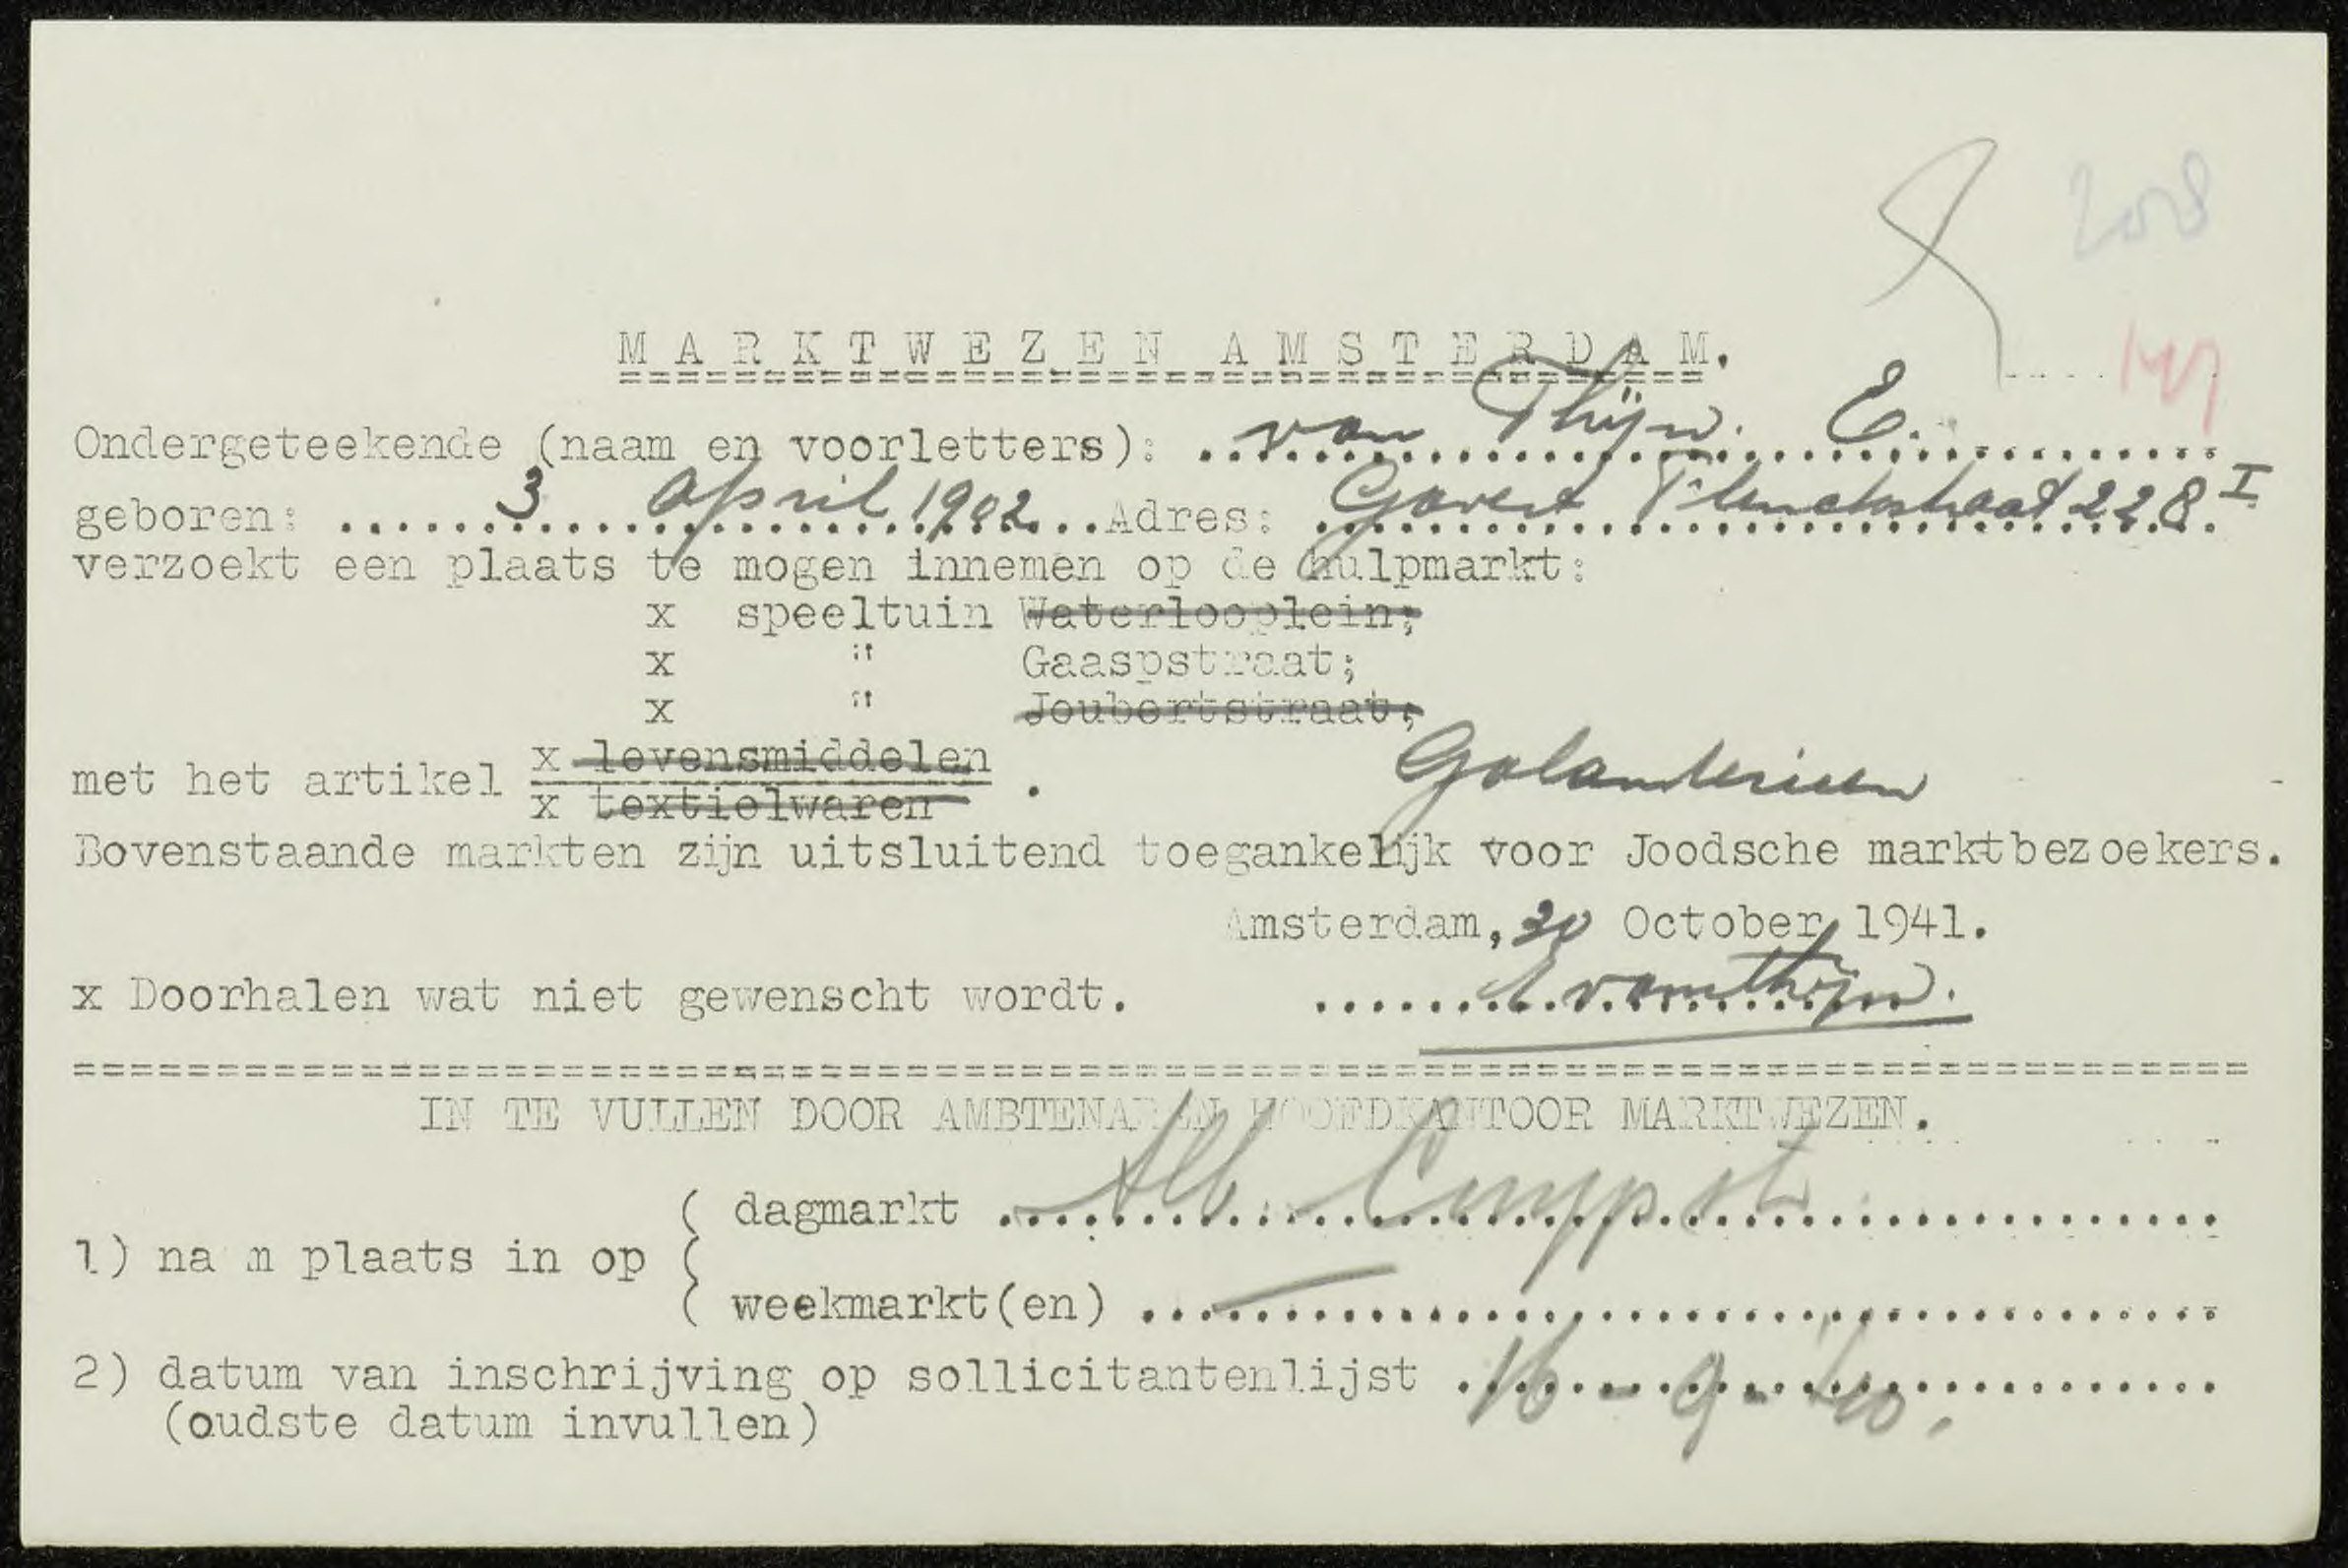 208
147
MARKTWEZEN AMSTERDAM.
Ondergeteekende (naam en voorletters): van Thijn. E.
geboren: 3 April 1902 Adres: Govert Flinckstraat 228 I
verzoekt een plaats te mogen innemen op de hulpmarkt:
x speeltuin Waterlooplein;
x " Gaaspstraat;
x " Joubertstraat;
met het artikel x levensmiddelen
x textielwaren . Galanterieen
Bovenstaande markten zijn uitsluitend toegankelijk voor Joodsche marktbezoekers.
Amsterdam, 20 October 1941.
x Doorhalen wat niet gewenscht wordt. E. van Thijn.
IN TE VULLEN DOOR AMBTENAREN HOOFDKANTOOR MARKTWEZEN.
( dagmarkt Alb. Cuypst
1) na m plaats in op (
( weekmarkt(en) —
2) datum van inschrijving op sollicitantenlijst 16-9-'40.
(oudste datum invullen)